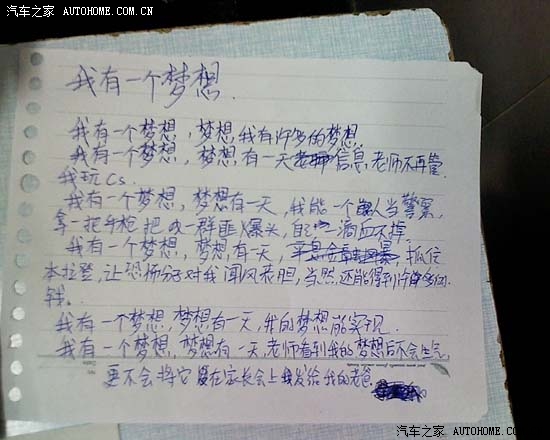 汽车之家 AUTOHOME.COM.CN
我有一个梦想.
我有一个梦想，梦想，我有许多的梦想.
我有一个梦想，梦想，有一天信息老师不再管
我玩Cs.
我有一个梦想，梦想有一天，我能一个人当警察,
拿一把手枪把一群匪爆头，自己一滴血不掉.
我有一个梦想，梦想，有一天，抓住
本拉登，让恐怖分子对我闻风丧胆，当然，还能得到许多
钱。
我有一个梦想，梦想有一天，我的梦想能实现.
我有一个梦想，梦想有一天，老师看到我的梦想后不会生气,
更不会将它在家长会上发给我的老爸
汽车之家 AUTOHOME.COM.CN